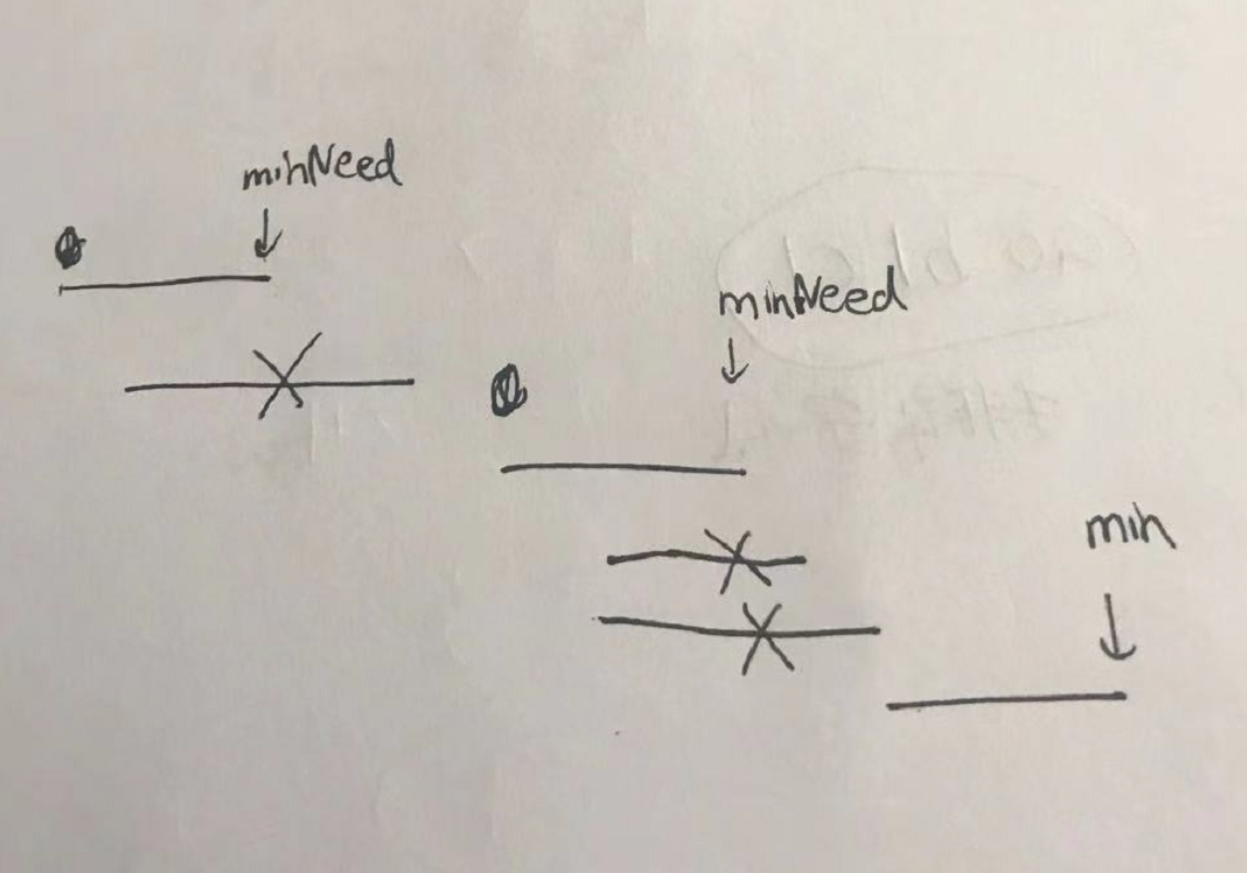 minNeed
minNeed
min